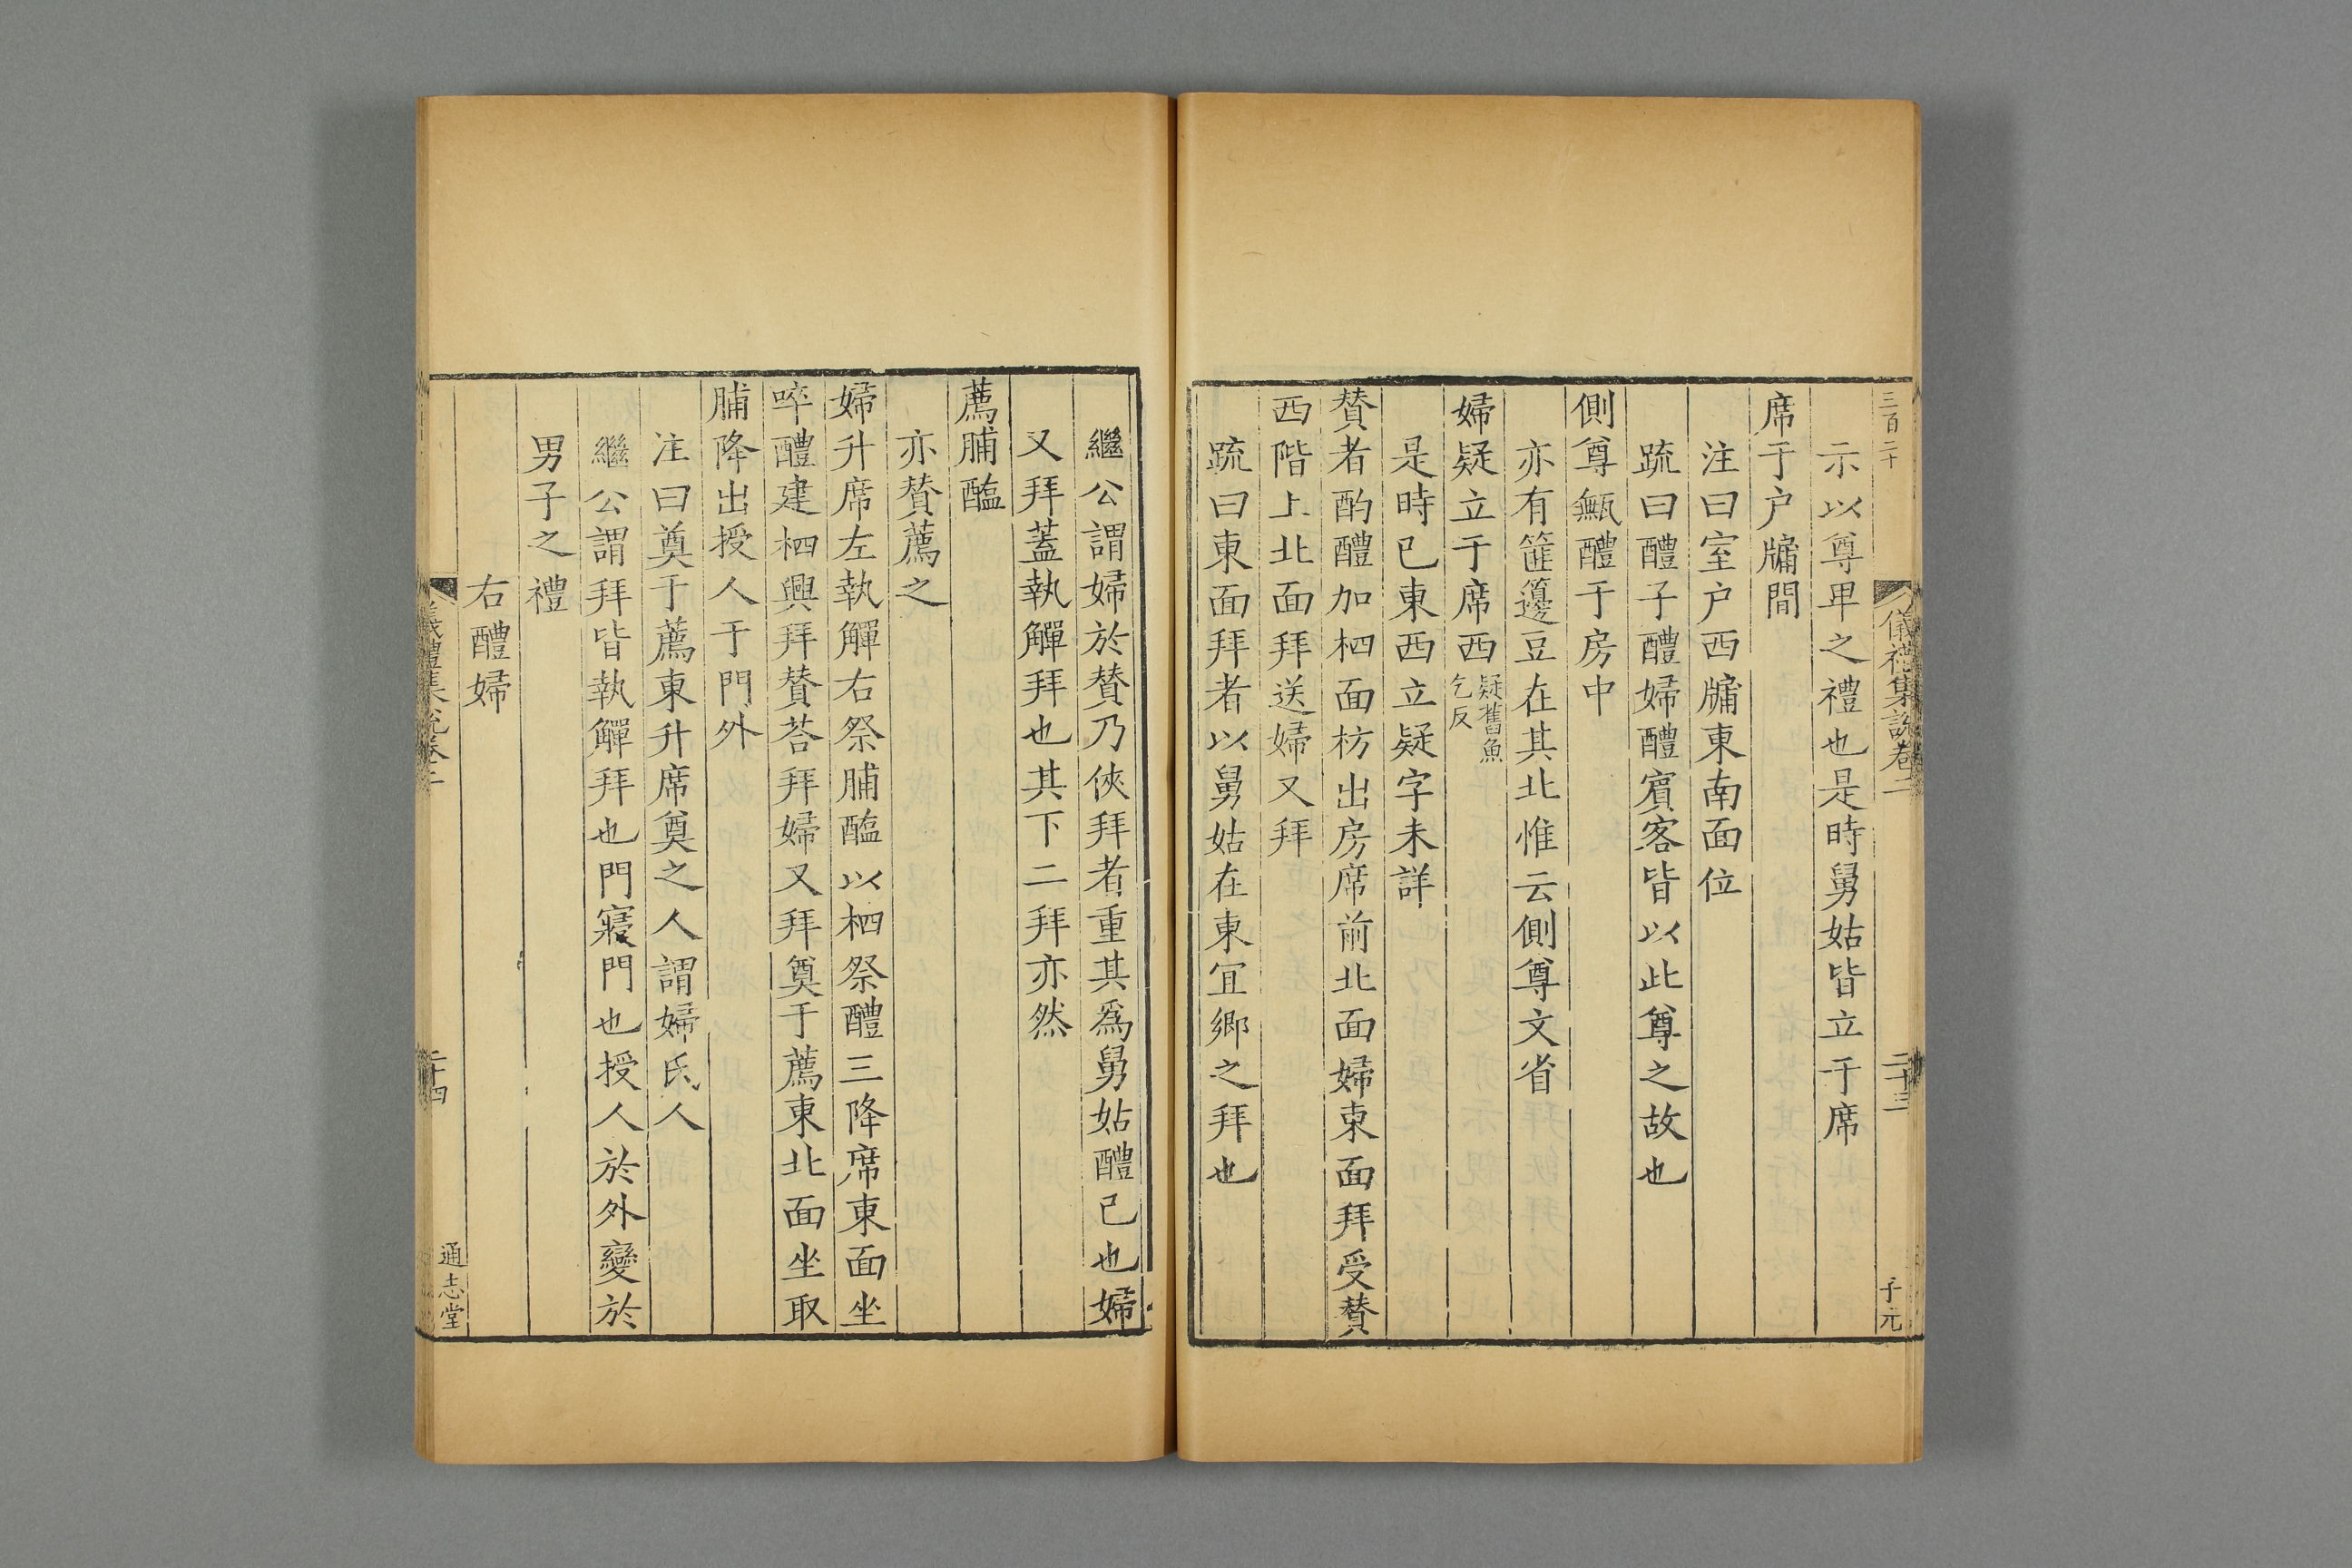 三百二十
儀禮集說卷二
二十三
子元
示以尊卑之禮也是時舅姑皆立于席
席于户牖間
注曰室户西牖東南面位
疏曰醴子醴婦醴賓客皆以此尊之故也
側尊甒醴于房中
亦有篚籩豆在其北惟云側尊文省
婦疑立于席西疑舊魚乞反
是時已東西立疑字未詳
賛者酌醴加柶面枋出房席前北面婦東面拜受賛
西階上北面拜送婦又拜
疏曰東面拜者以舅姑在東宜鄉之拜也
繼公謂婦於賛乃俠拜者重其爲舅姑醴己也婦
又拜蓋執觶拜也其下二拜亦然
薦脯醢
亦賛薦之
婦升席左執觶右祭脯醢以柶祭醴三降席東面坐
啐醴建柶興拜賛荅拜婦又拜奠于薦東北面坐取
脯降出授人于門外
注曰奠于薦東升席奠之人謂婦氏人
繼公謂拜皆執觶拜也門寢門也授人於外變於
男子之禮
右醴婦
儀禮集說卷二
二十四
通志堂